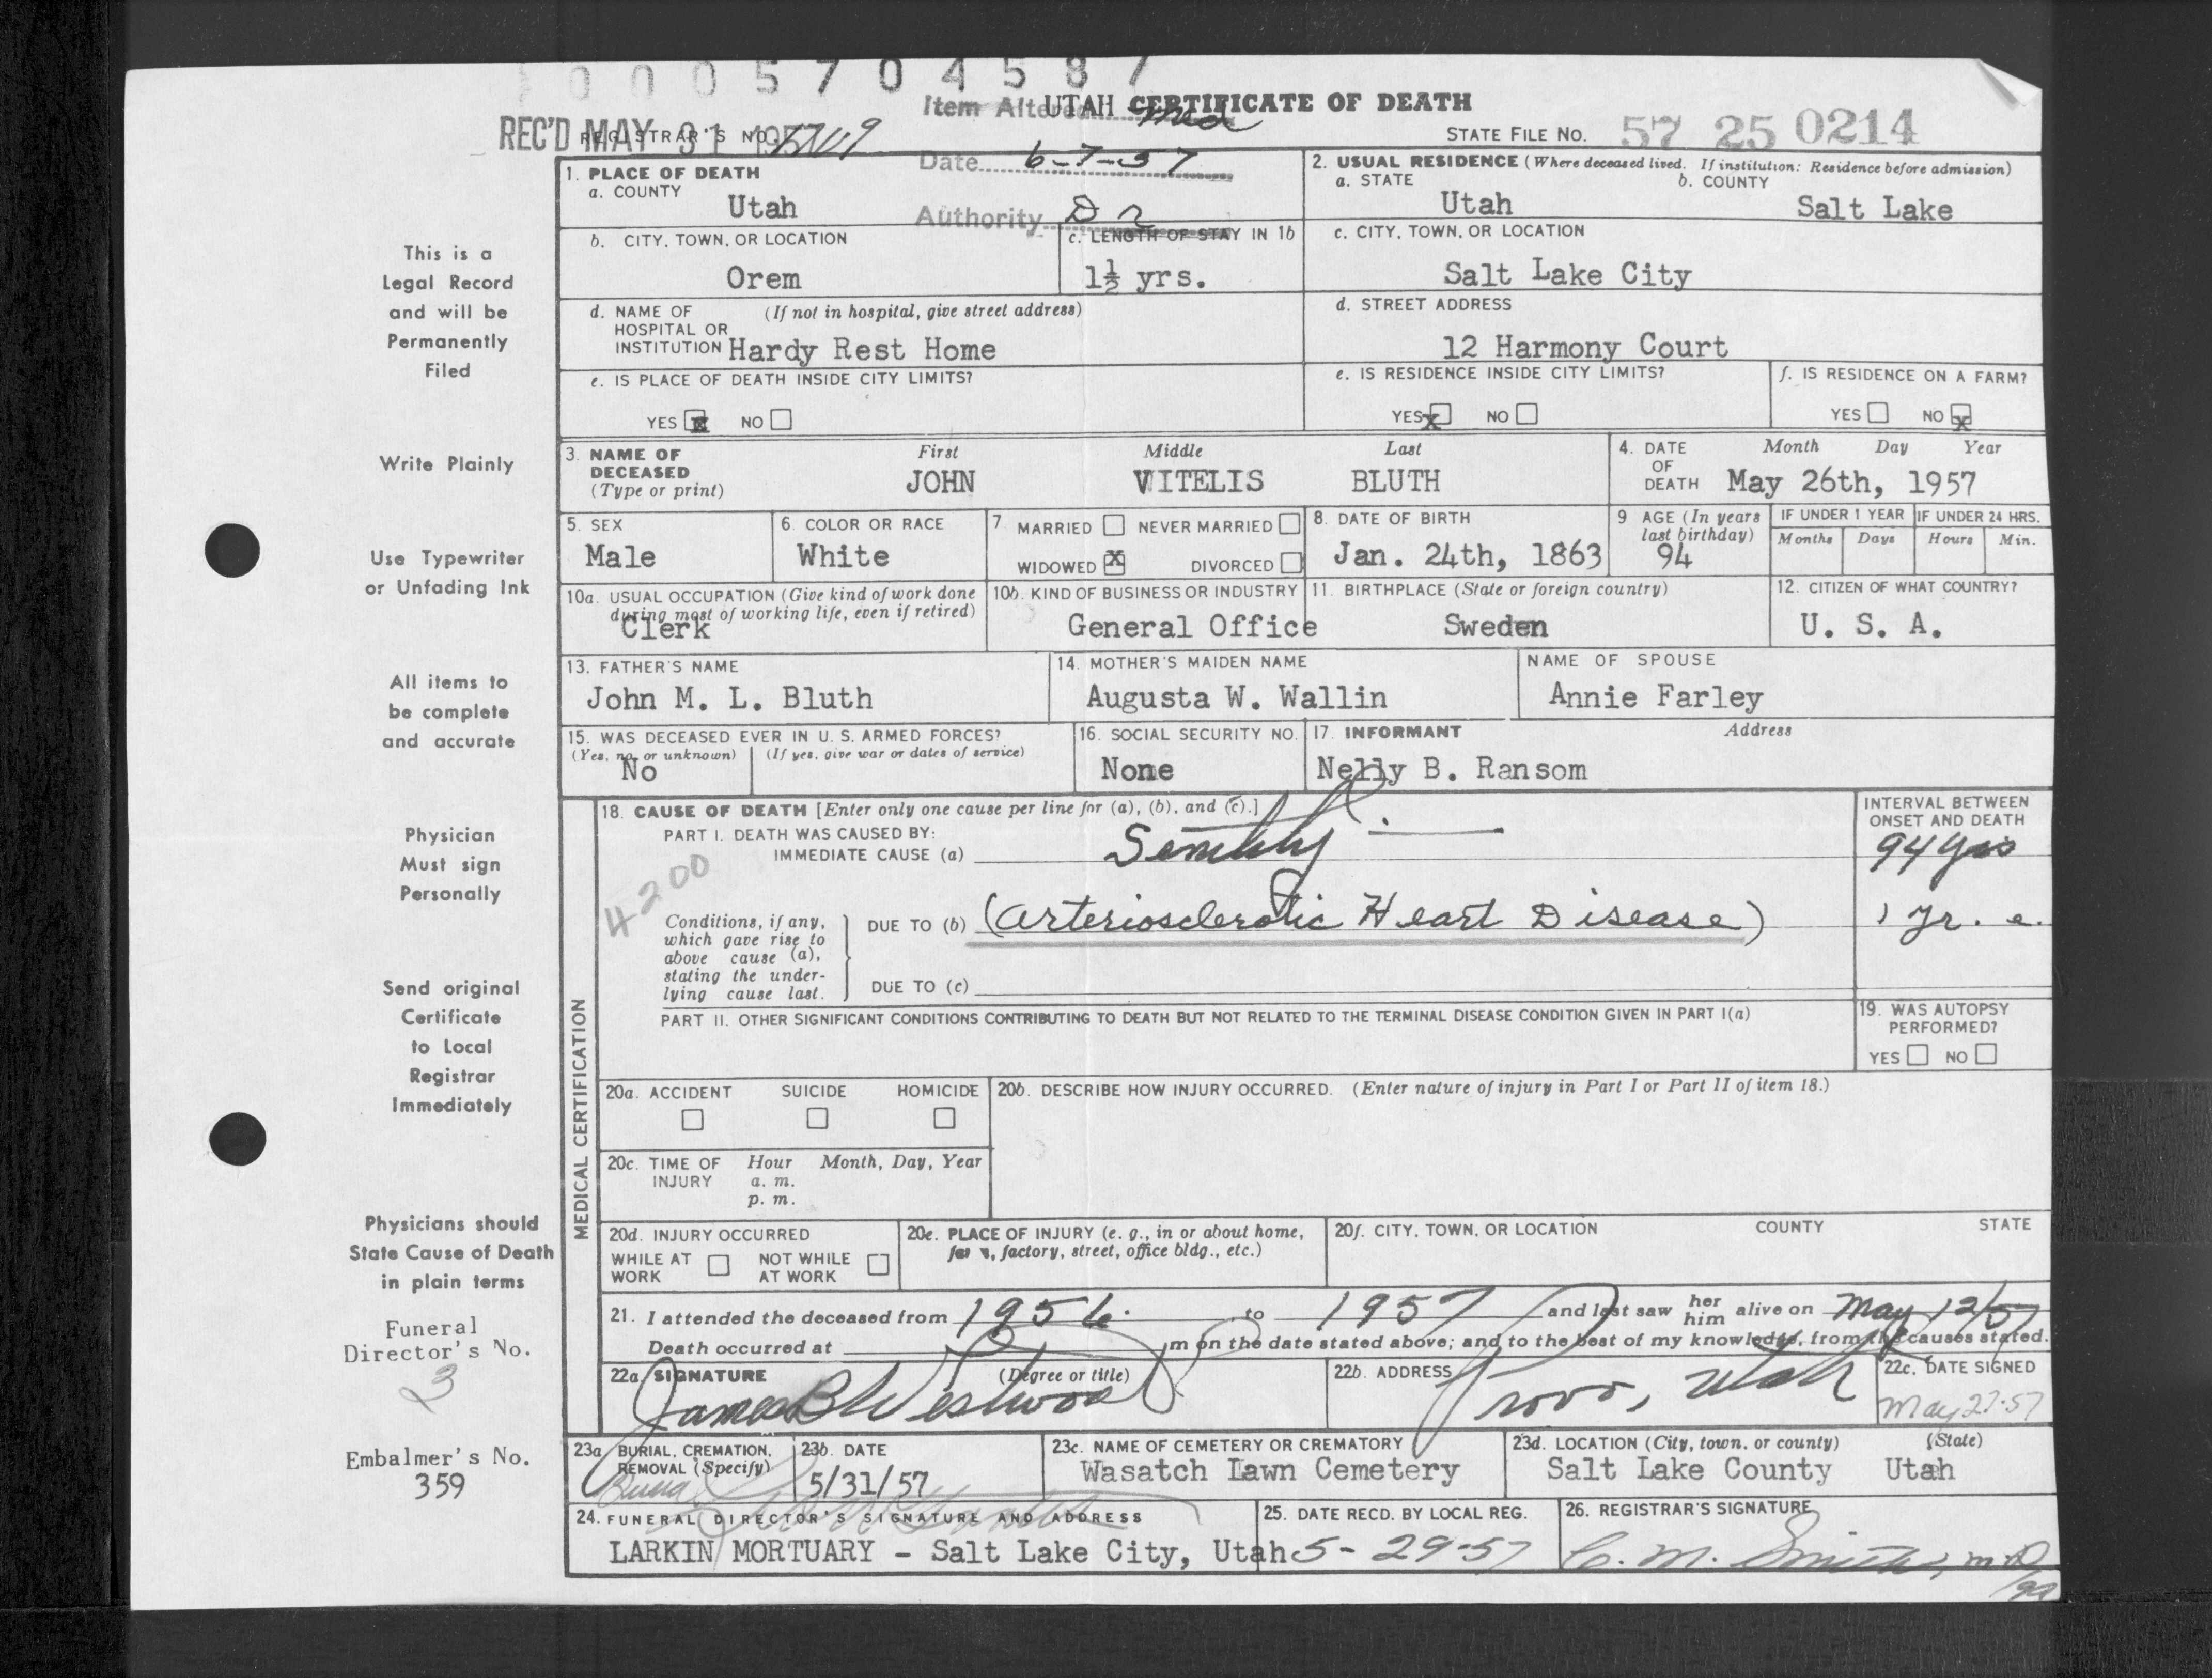 0 0 0 5 7 0 4 5 8 7
Item Altered Med UTAH CERTIFICATE OF DEATH
REC'D MAY 31 1957 REGISTRAR'S NO.
STATE FILE NO. 57 25 0214
Date 6-7-57
Authority
1. PLACE OF DEATH
a. COUNTY
Utah
2. USUAL RESIDENCE (Where deceased lived. If institution: Residence before admission)
a. STATE b. COUNTY
Utah Salt Lake
b. CITY, TOWN, OR LOCATION
Orem
c. LENGTH OF STAY IN 1b
1½ yrs.
c. CITY, TOWN, OR LOCATION
Salt Lake City
d. NAME OF (If not in hospital, give street address)
HOSPITAL OR
INSTITUTION Hardy Rest Home
d. STREET ADDRESS
12 Harmony Court
e. IS PLACE OF DEATH INSIDE CITY LIMITS?
YES X NO
e. IS RESIDENCE INSIDE CITY LIMITS?
YES X NO
f. IS RESIDENCE ON A FARM?
YES NO X
3. NAME OF
DECEASED
(Type or print)
First Middle Last
JOHN VITELIS BLUTH
4. DATE Month Day Year
OF
DEATH May 26th, 1957
5. SEX
Male
6. COLOR OR RACE
White
7. MARRIED NEVER MARRIED
WIDOWED X DIVORCED
8. DATE OF BIRTH
Jan. 24th, 1863
9 AGE (In years
last birthday)
94
IF UNDER 1 YEAR IF UNDER 24 HRS.
Months Days Hours Min.
10a. USUAL OCCUPATION (Give kind of work done
during most of working life, even if retired)
Clerk
10b. KIND OF BUSINESS OR INDUSTRY
General Office
11. BIRTHPLACE (State or foreign country)
Sweden
12. CITIZEN OF WHAT COUNTRY?
U. S. A.
13. FATHER'S NAME
John M. L. Bluth
14. MOTHER'S MAIDEN NAME
Augusta W. Wallin
NAME OF SPOUSE
Annie Farley
15. WAS DECEASED EVER IN U. S. ARMED FORCES?
(Yes, no, or unknown) (If yes, give war or dates of service)
No
16. SOCIAL SECURITY NO.
None
17. INFORMANT Address
Nelly B. Ransom
MEDICAL CERTIFICATION
18. CAUSE OF DEATH [Enter only one cause per line for (a), (b), and (c).]
PART I. DEATH WAS CAUSED BY:
IMMEDIATE CAUSE (a) Senility
INTERVAL BETWEEN
ONSET AND DEATH
94 yrs
4200
Conditions, if any,
which gave rise to
above cause (a),
stating the under-
lying cause last.
DUE TO (b) (Arteriosclerotic Heart Disease) 1 yr. e.
DUE TO (c)
PART II. OTHER SIGNIFICANT CONDITIONS CONTRIBUTING TO DEATH BUT NOT RELATED TO THE TERMINAL DISEASE CONDITION GIVEN IN PART I(a)
19. WAS AUTOPSY
PERFORMED?
YES NO
20a. ACCIDENT SUICIDE HOMICIDE
20b. DESCRIBE HOW INJURY OCCURRED. (Enter nature of injury in Part I or Part II of item 18.)
20c. TIME OF Hour Month, Day, Year
INJURY a. m.
p. m.
20d. INJURY OCCURRED
WHILE AT NOT WHILE
WORK AT WORK
20e. PLACE OF INJURY (e. g., in or about home,
farm, factory, street, office bldg., etc.)
20f. CITY, TOWN, OR LOCATION COUNTY STATE
21. I attended the deceased from 1956 to 1957 and last saw her him alive on May 12/57
Death occurred at m on the date stated above; and to the best of my knowledge, from the causes stated.
22a. SIGNATURE (Degree or title)
James B Westwood
22b. ADDRESS
Provo, Utah
22c. DATE SIGNED
May 27-57
23a. BURIAL, CREMATION,
REMOVAL (Specify)
Burial
23b. DATE
5/31/57
23c. NAME OF CEMETERY OR CREMATORY
Wasatch Lawn Cemetery
23d. LOCATION (City, town, or county) (State)
Salt Lake County Utah
24. FUNERAL DIRECTOR'S SIGNATURE AND ADDRESS
LARKIN MORTUARY - Salt Lake City, Utah
25. DATE RECD. BY LOCAL REG.
5-29-57
26. REGISTRAR'S SIGNATURE
C. M. Smith, M.D.
This is a
Legal Record
and will be
Permanently
Filed
Write Plainly
Use Typewriter
or Unfading Ink
All items to
be complete
and accurate
Physician
Must sign
Personally
Send original
Certificate
to Local
Registrar
Immediately
Physicians should
State Cause of Death
in plain terms
Funeral
Director's No.
3
Embalmer's No.
359